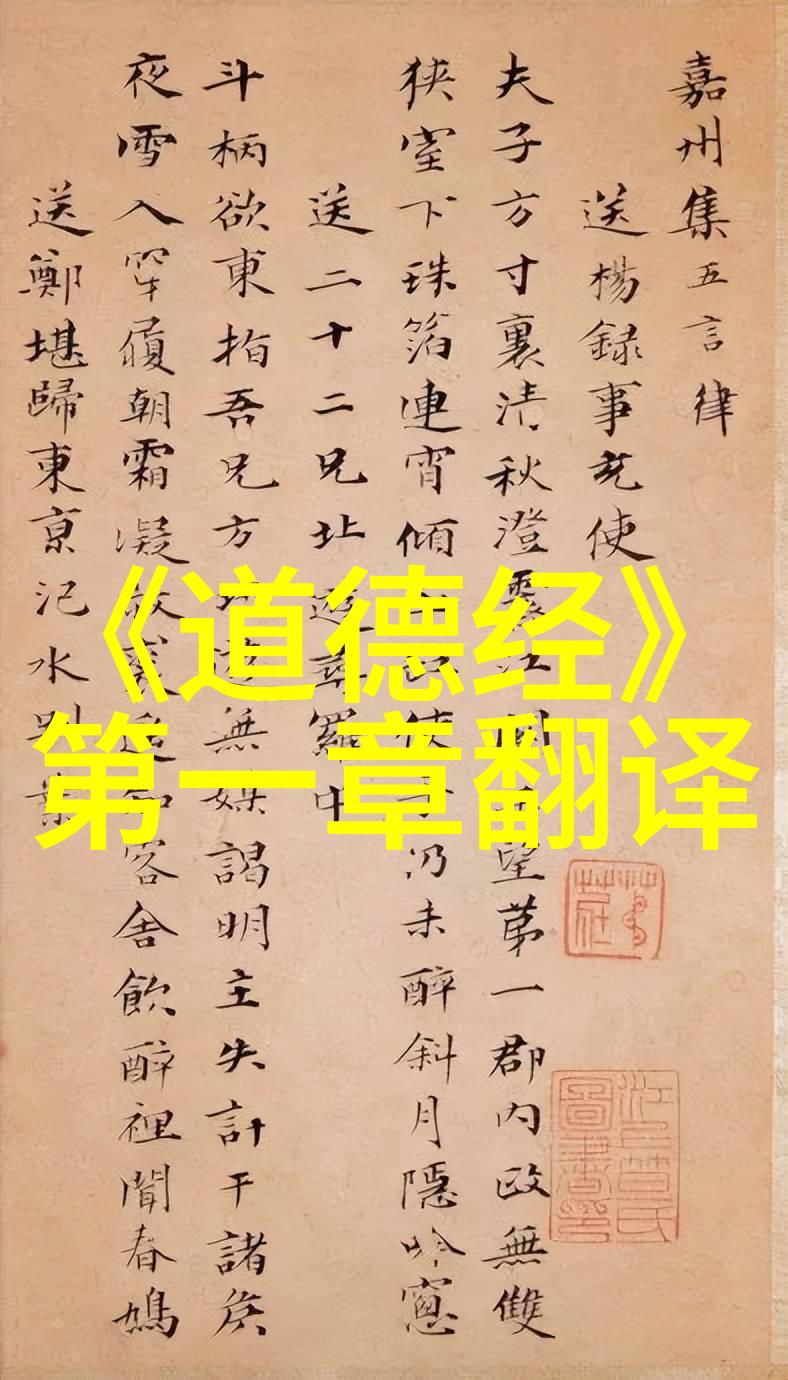 嘉州集五言律
送楊録事充使
夫子方寸裏清秋澄霽江關西望第一郡內政無雙
狹室下珠箔連宵傾玉缸使乎仍未醉斜月隱吟窻
送二十二兄北遊尋羅中
斗柄欲東指吾兄方北遊無媒謁明主失計干諸侯
夜雪入穿履朝霜凝敝裘遥知客舍飲醉裡聞春鳩
送鄭堪歸東京汜水別業
《道德经》
第一章翻译